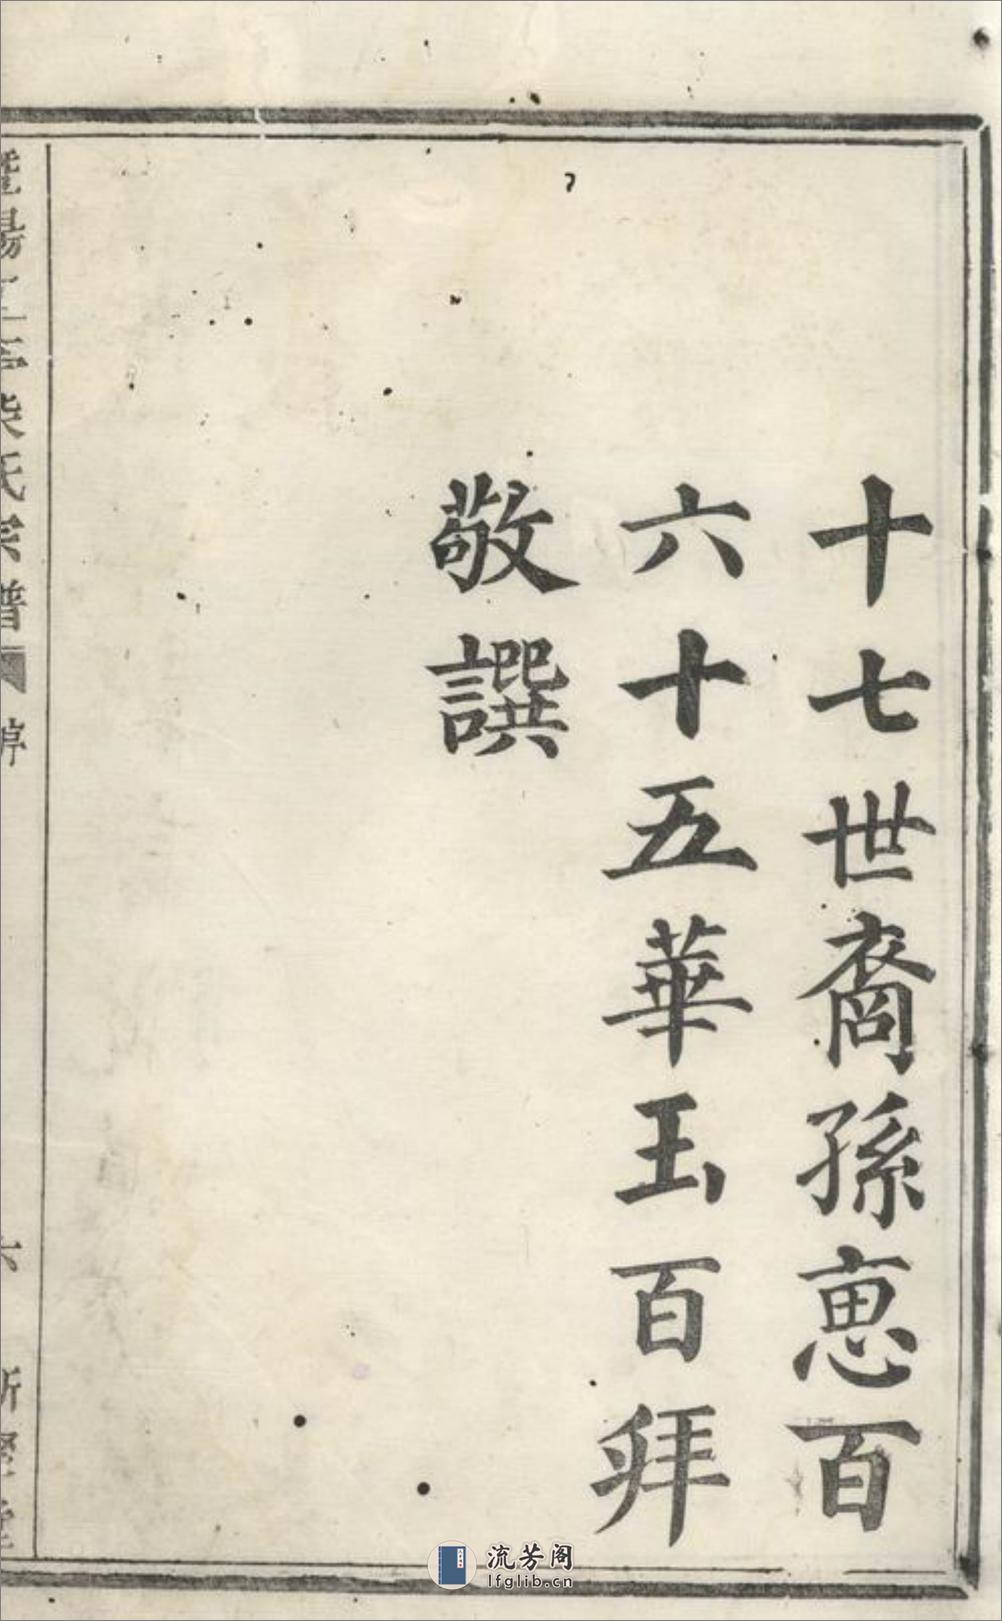 十七世裔孫恵百
六十五華玉百拜
敬譔
氏宗譜
流芳阁
lfglib.cn